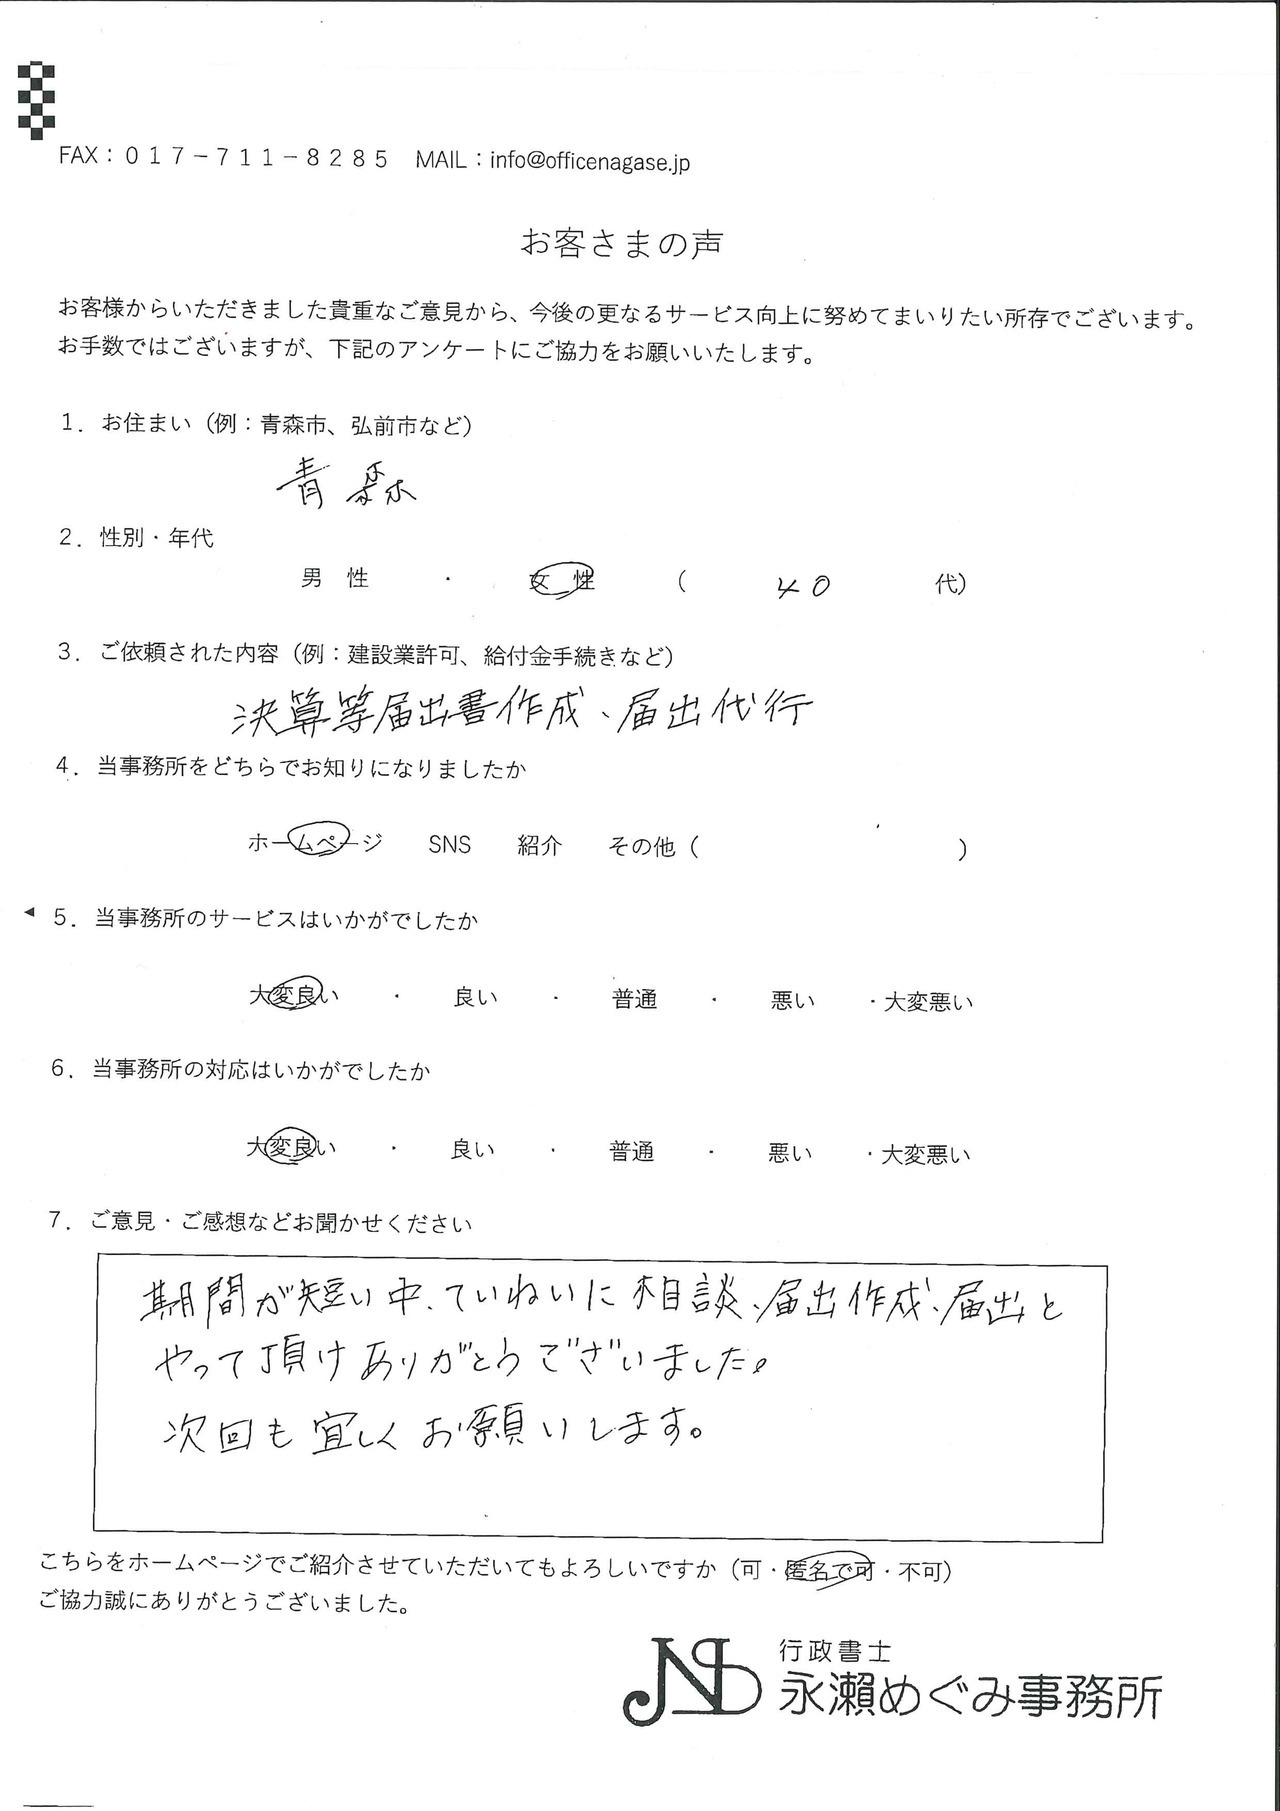 FAX：０１７－７１１－８２８５　MAIL：info@officenagase.jp
お客さまの声
お客様からいただきました貴重なご意見から、今後の更なるサービス向上に努めてまいりたい所存でございます。
お手数ではございますが、下記のアンケートにご協力をお願いいたします。
１．お住まい（例：青森市、弘前市など）
青森
２．性別・年代
男　性　・　女　性　（　40　代）
３．ご依頼された内容（例：建設業許可、給付金手続きなど）
決算等届出書作成、届出代行
４．当事務所をどちらでお知りになりましたか
ホームページ　SNS　紹介　その他（　　　）
５．当事務所のサービスはいかがでしたか
大変良い　・　良い　・　普通　・　悪い　・大変悪い
６．当事務所の対応はいかがでしたか
大変良い　・　良い　・　普通　・　悪い　・大変悪い
７．ご意見・ご感想などお聞かせください
期間が短い中、ていねいに相談、届出作成、届出と
やって頂けありがとうございました。
次回も宜しくお願いします。
こちらをホームページでご紹介させていただいてもよろしいですか（可・匿名で可・不可）
ご協力誠にありがとうございました。
行政書士
永瀬めぐみ事務所